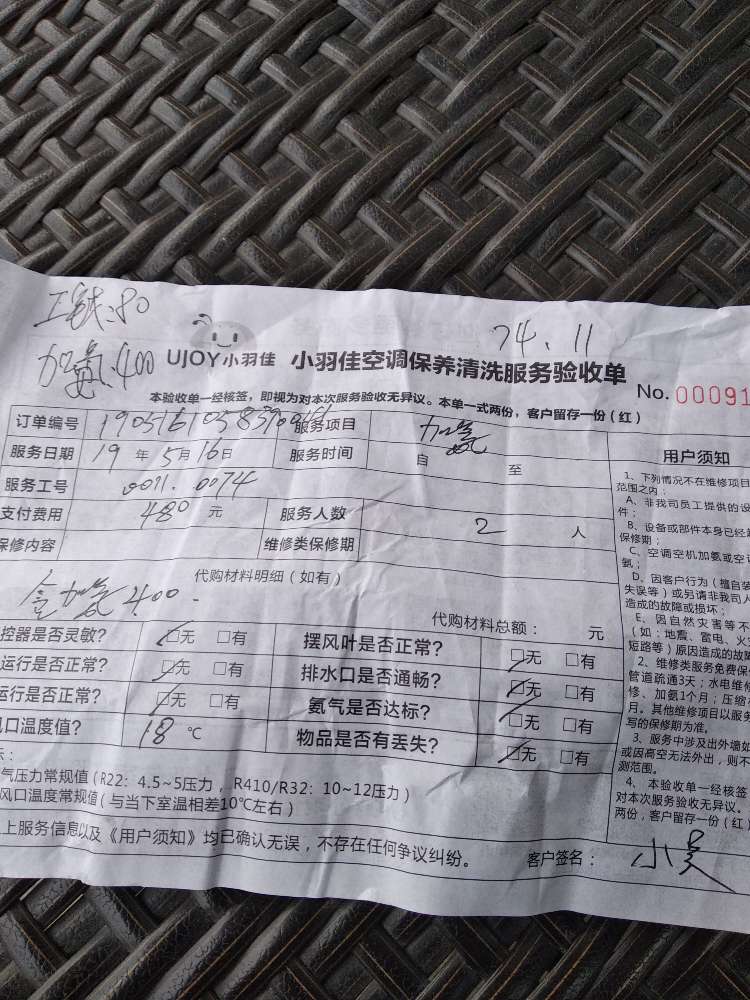 工钱:80
加氨:400
74.11
UJOY小羽佳 小羽佳空调保养清洗服务验收单
No. 00091
本验收单一经核签，即视为对本次服务验收无异议。本单一式两份，客户留存一份（红）
订单编号 服务项目 加氨
服务日期 19 年 5 月 16 日 服务时间 自 至
服务工号 0011.0074
支付费用 480 元 服务人数 2 人
保修内容 维修类保修期
代购材料明细（如有）
含加氨400
代购材料总额： 元
控器是否灵敏？ ☑无 □有 摆风叶是否正常？ ☑无 □有
运行是否正常？ ☑无 □有 排水口是否通畅？ ☑无 □有
运行是否正常？ ☑无 □有 氨气是否达标？ ☑无 □有
风口温度值？ 18 ℃ 物品是否有丢失？ ☑无 □有
示：
气压力常规值（R22：4.5~5压力，R410/R32：10~12压力）
风口温度常规值（与当下室温相差10℃左右）
上服务信息以及《用户须知》均已确认无误，不存在任何争议纠纷。 客户签名： 小吴
用户须知
1、下列情况不在维修项目
范围之内：
A、非我司员工提供的设
件；
B、设备或部件本身已经超
保修期；
C、空调空机加氨或空调
氨；
D、因客户行为（擅自装
失误等）或另请非我司人
造成的故障或损坏；
E、因自然灾害等不
（如：地震、雷电、火
短路等）原因造成的故障
2、维修类服务免费保
管道疏通3天；水电维修
修、加氨1个月；压缩机
月。其他维修项目以服务
写的保修期为准。
3、服务中涉及出外墙如
或因高空无法外出，则不
测范围。
4、本验收单一经核签
对本次服务验收无异议。
两份，客户留存一份（红）